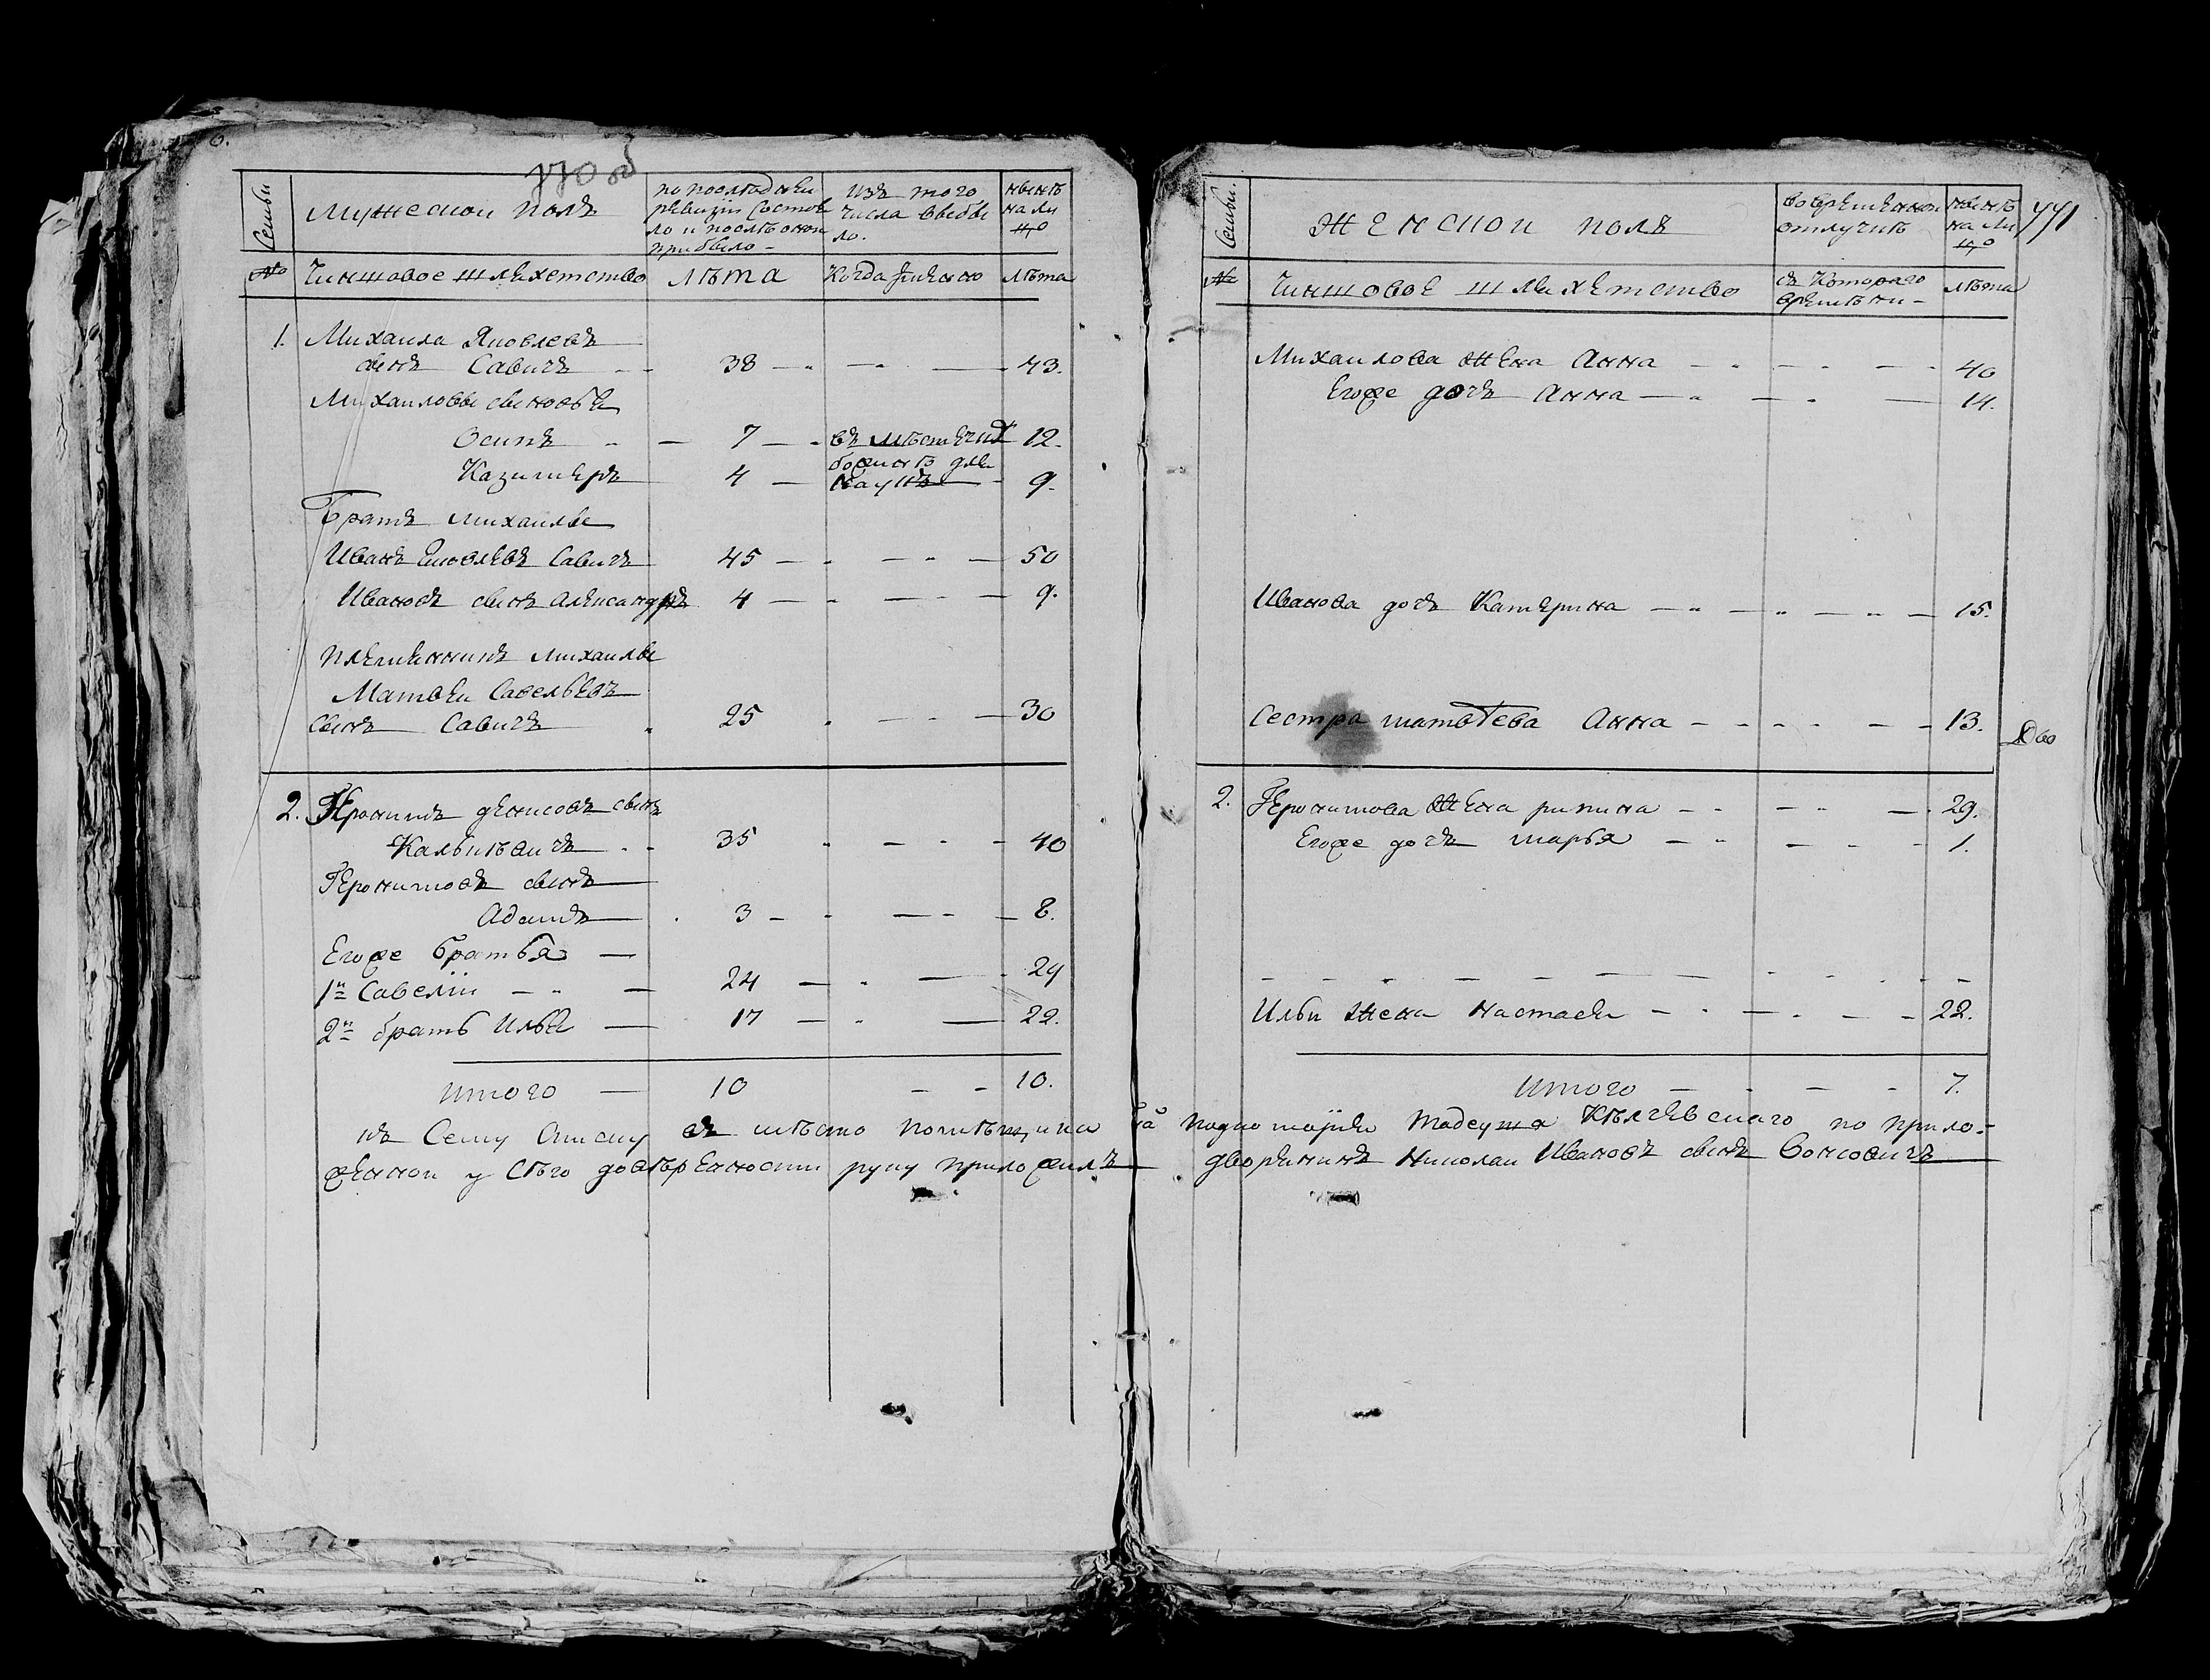 6.
770 об
Семьи
Мужескои полъ
по последнеи
ревизіи состоя
ло и после онои
прибыло -
изъ того
числа выбы
ло.
ныне
на ли
цо
№
Чиншовое шляхетство
лѣта
Когда имянно
лѣта
1. Михаила Яковлевъ
сынъ Савичъ 38 43.
Михаиловы сыновья
Осипъ 7 въ местечке 12.
Казимеръ 4 9.
для науки
Братъ михаилы
Иванъ Яковлевъ Савичъ 45 50
Ивановъ сынъ Александръ 4 9.
племянникъ михаилы
Матвеи Савельевъ
сынъ Савичъ 25 30
2. Геронимъ денисовъ сынъ
35 40
Геронимовъ сынъ
Адамъ 3 8.
Егоже братья
1й Савелій 24 29
2й братъ Илья 17 22.
итого 10 10.
771
Семьи.
Женскои полъ
во временнои
отлучке
ныне
на ли
цо
№
Чиншовое шляхетство
съ котораго
времѣни -
лѣта
Михаилова жена Анна 40
Егоже дочъ Анна 14.
Иванова дочъ Катерина 15.
Сестра матвеева Анна 13.
2. Геронимова жена 29.
Егоже дочъ марья 1.
Ильи жена настасья 22.
итого 7.
къ Сему Списку въ место помещика подкоморія Тадеуша по прило-
женнои у Сего доверенности руку приложилъ дворянинъ Николаи Ивановъ сынъ